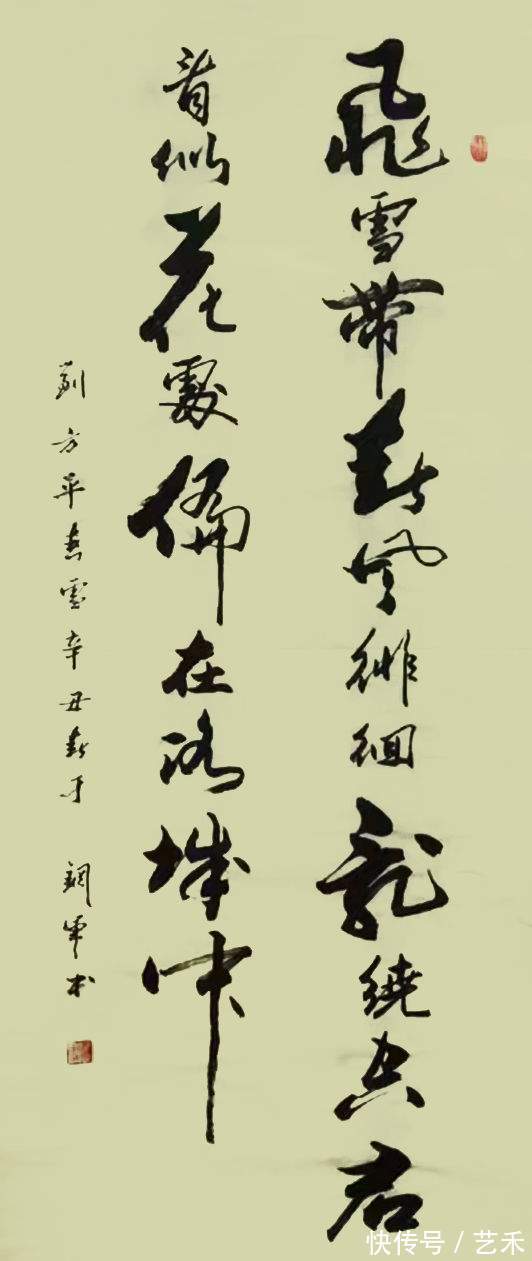 飛雪帶春風徘徊亂繞空君
看似花處偏在洛城中
劉方平春雪辛丑春于
快传号 / 艺禾